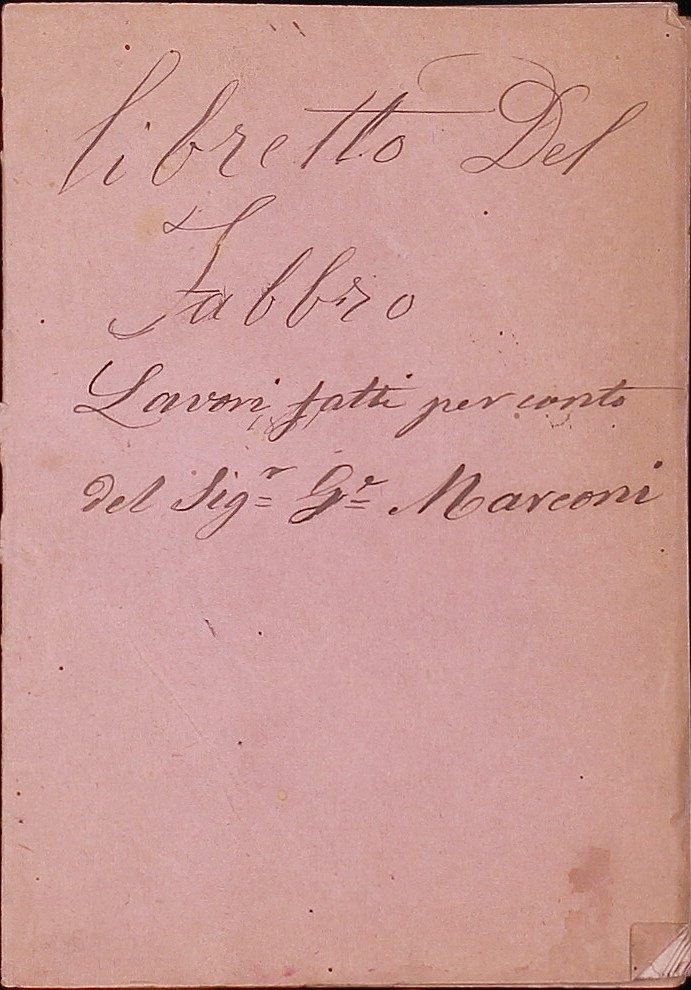 libretto Del
Fabbro
Lavori fatti per conto
del Sigʳ Gʳ Marconi